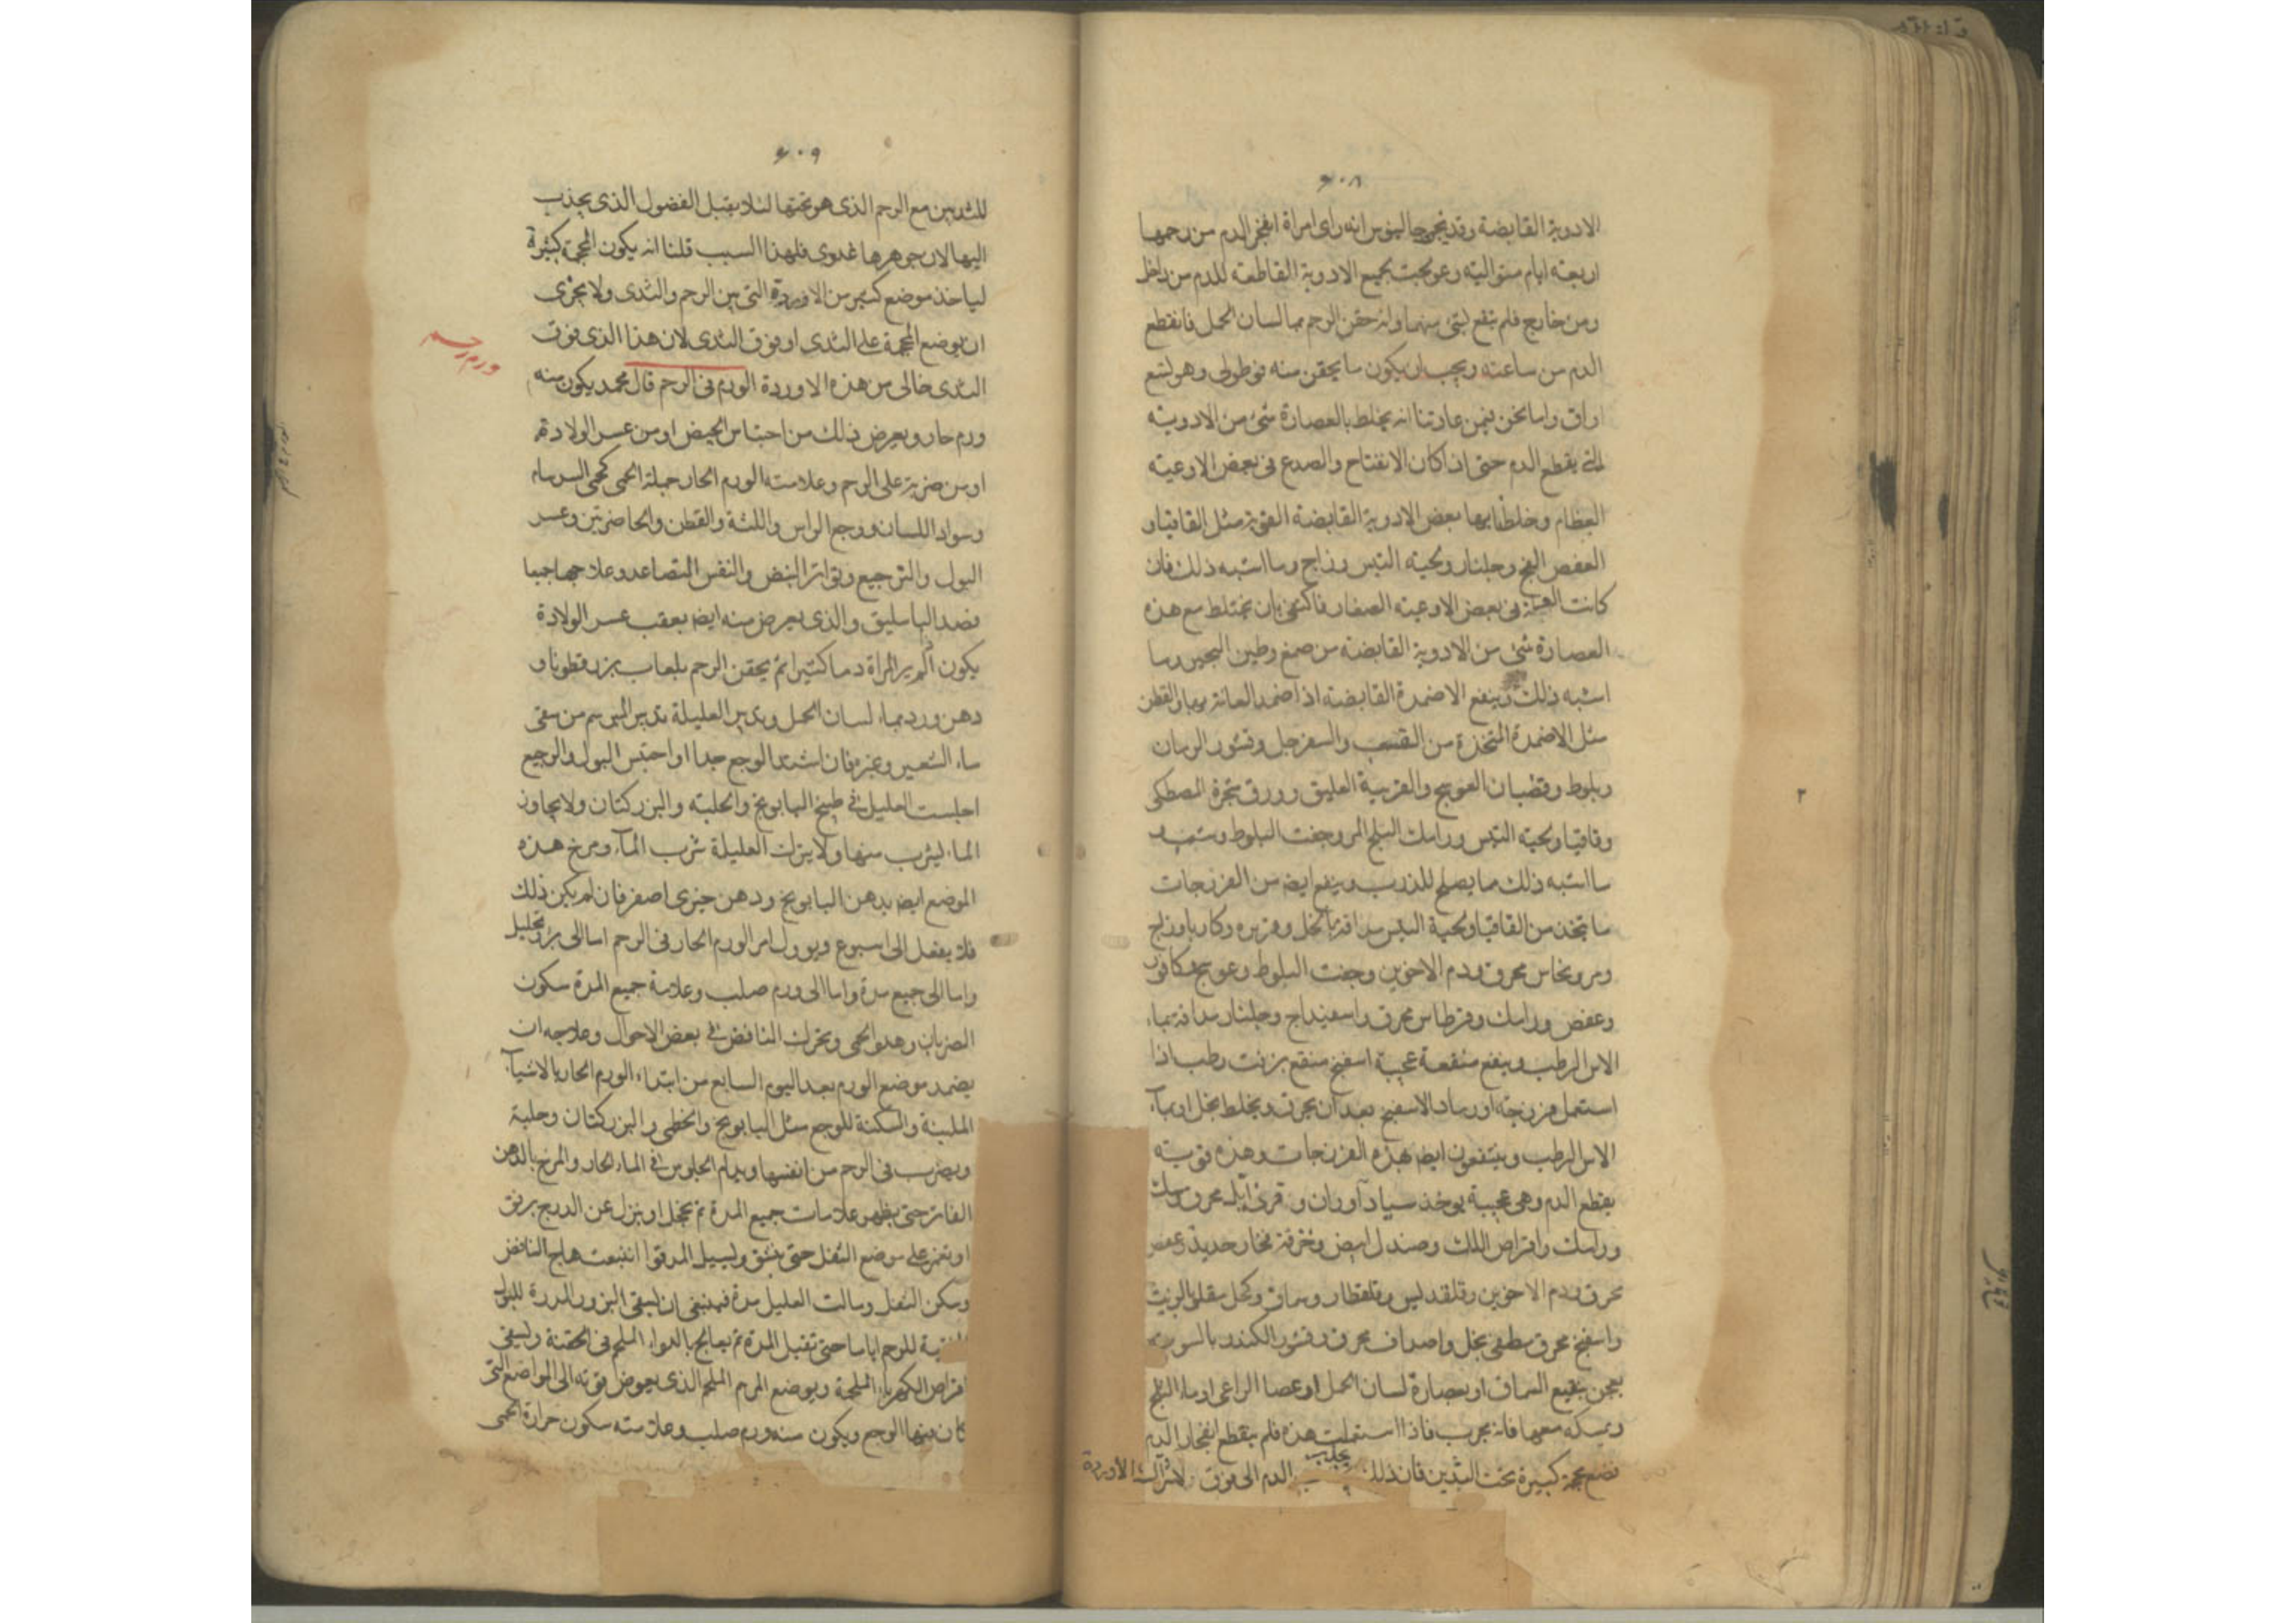 ٦٠٨
الادوية القابضة وقد نجى جالينوس انه راى امراة انفجر الدم من رحمها
اربعته ايام متواليته وعولجت بجميع الادوية القاطعته للدم من داخل
ومن خارج فلم ينفع لشئ منهما وانه حقن الرحم بما لسان الحمل فانقطع
الدم من ساعته ويجب ان يكون ما يحقن منه قوطولى وهو لتسع
اواق واما نحن فمن عادتنا انه يخلط بالعصارة شئ من الادويته
التى يقطع الدم حتى اذا كان الانفتاح والصدع فى بعض الاوعيته
العظام وخلطنا بها بعض الادوية القابضة القوية مثل القاقيا و
العفص الفج وجلنار ولحيته التيس وزاج وما اشبه ذلك فان
كانت العلة فى بعض الاوعيته الصغار فاكتفى بان يختلط مع هذه
العصارة شئ من الادوية القابضته من صمغ وطين البحيره وما
اشبه ذلك وينفع الاضمدة القابضته اذا ضمد العانة بها والقطن
مثل الاضمدة المتخذة من القسب والسفرجل وقشور الرمان
وبلوط وقضبان العوسج والغربية العليق وورق شجرة المصطكى
وقاقيا ولحية التيس ورامك البلح المر وجفت البلوط وشب و
ما اشبه ذلك مما يصلح للذرب وينفع ايضه من الفرزجات
ما يتخذ من القاقيا ولحية التيس مدافة بالخل وفربره وكاربا وزاج
ومر ونحاس محرق ودم الاخوين وجفت البلوط وعوسج وكافور
وعفص ورامك وقرطاس محرق واسفيداج وجلنار مدافة بماء
الاس الرطب وينفع منفعة عجيبة اسفنج منقع بزفت رطب اذا
استعمل فرزجته اورماد الاسفنج بعد ان يحرق ويخلط بخل او بماء
الاس الرطب وينتفعون ايضه بهذه الفرزجات وهذه قويته
يقطع الدم وهى عجيبة يوخذ سياد آوران وقرن ايل محرق وسك
ورامك واقراص اللك وصندل ابيض وخرقة فخار حديد وعفص
محرق ودم الاخوين وقلقديس وقلقطار وسماق وكحل مقلو بالزيت
واسفنج محرق مطفى بخل واصداف محرق وقشور الكندر بالسوية
يعجن بنقيع السماق او بعصارة لسان الحمل او عصا الراعى او ماء البلح
ويمسكه معها فانه يجرب فاذا استعملت هذه فلم ينقطع انفجار الدم
فضع محجمة كبيرة تحت الثديين فان ذلك يجذب الدم الى فوق لاشراك الاوردة
٦٠٩
للثديين مع الرحم الذى هو تحتها لئلا يقبل الفضول الذى يجذب
اليها لان جوهرها غدوى فلهذا السبب قلنا انه يكون المحجمة كبيرة
لياخذ موضع كثير من الاوردة التى بين الرحم والثدى ولا يجزى
ان يوضع المحجمة على الثدى او فوق الثدى لان هذا الذى فوق
ورم رحم
الثدى خالى من هذه الاوردة الورم فى الرحم قال محمد يكون منه
ورم حار ويعرض ذلك من احتباس الحيض او من عسر الولادة
او من ضربة على الرحم وعلامته الورم الحار جملة الحمى كحمى السرسام
وسواد اللسان ووجع الراس واللثة والقطن والخاصرتين وعسر
البول والترجيع وتواتر النبض والنفس المتصاعد وعلاجها جميعا
فصد الباسليق والذى يعرض منه ايضه بعقب عسر الولادة
يكون الم ير المراة دما كثيرا ثم يحقن الرحم بلعاب بزر قطونا و
دهن ورد بماء لسان الحمل ويدبر العليلة تدبير المبرسم من سقى
ماء الشعير وغيره فان اشتد الوجع جدا او احتبس البول والرجيع
اجلست العليل فى طبيخ البابونج والحلبته والبزر كتان ولا يجاوز
الماء ليشرب منها ولا يترك العليلة شرب الماء ومرخ هذه
الموضع ايضه بدهن البابونج ودهن خيرى اصفر فان لم يكن ذلك
فلا يفعل الى اسبوع ويوول امر الورم الحار فى الرحم اما الى برؤ وتحليل
واما الى جمع مدة واما الى ورم صلب وعلامة جميع المدة سكون
الضربان وهدو الحمى وتحرك النافض فى بعض الاحوال وعلاجه ان
يضمد موضع الورم بعد اليوم السابع من ابتداء الورم الحار بالاشياء
الملينة والمسكنة للوجع مثل البابونج والخطمى والبزر كتان وحلبة
ويضرب فى الرحم من انفسها ويدام الجلوس فى الماء الحار والمرخ بالدهن
الفاتر حتى يظهر علامات جميع المدة ثم يحجل او ينزل عن الدرج برفق
او يغمز على موضع الثفل حتى ينشق ويسيل المدة فاذا انبعث هاج النافض
وسكن الثقل وسالت العليل مدة فينبغى ان يسقى البزور المدرة للبول
المنقية للرحم اياما حتى تقبل المدة ثم يعالج بالدواء الملحم فى الحقنة ويسقى
اقراص الكهرباء الملحمة ويوضع المرهم الملحم الذى يعوص قوته الى المواضع التى
كان فيها الوجع ويكون منه ورم صلب وعلامته سكون حرارة الحمى